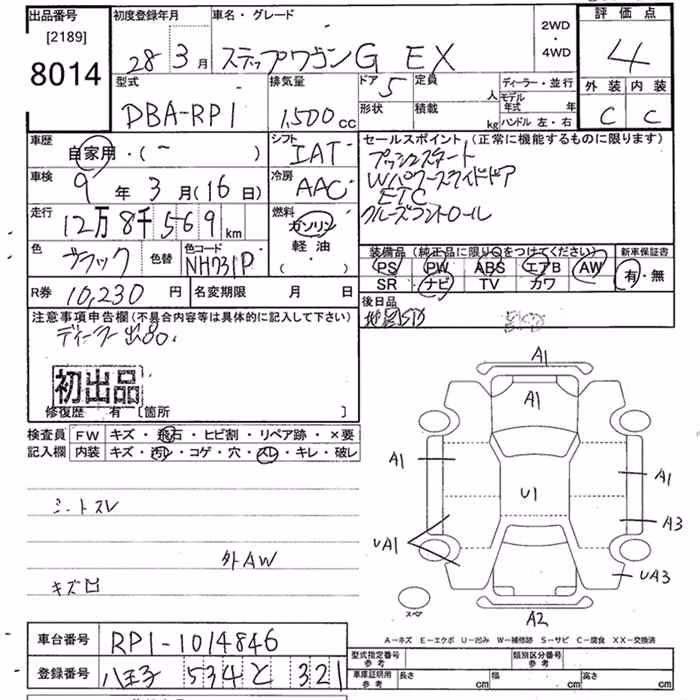 出品番号 初度登録年月 車名・グレード 評価点
[2189] 8014
28年 3月 ステップワゴンG EX 2WD・4WD 4
型式 排気量 ドア 5 定員 人 ディーラー・並行 外装 内装
DBA-RP1 1,500cc 形状 積載 kg モデル年式 年 ハンドル 左・右 C C
車歴 シフト セールスポイント (正常に機能するものに限ります)
自家用・(ー ) IAT プッシュスタート
車検 冷房 Wパワースライドドア
9年 3月(16日) AAC ETC
走行 燃料 クルーズコントロール
12万 8千 569km ガソリン
色 色替 色コード 軽油・( ) 装備品 (純正品に限り○をつけてください) 新車保証書
ブラック NH731P PS PW ABS エアB AW 有・無
SR ナビ TV カワ
R券 10,230円 名変期限 月 日 後日品
注意事項申告欄(不具合内容等は具体的に記入して下さい)
ディーラー出品。
初出品
修復歴 有 [箇所 ]
検査員 FW キズ・飛石・ヒビ割・リペア跡・×要
記入欄 内装 キズ・汚レ・コゲ・穴・スレ・キレ・破レ
シートスレ
外AW
キズ凹
A1
A1
A1 A1
U1
A3
UA1
UA3
スペア
A2
A−キズ E−エクボ U−凹み W−補修跡 S−サビ C−腐食 XX−交換済
車台番号 RP1-1014846
登録番号 八王子 534 と 321
型式指定番号 参考 類別区分番号 参考
車庫証明用 参考 長さ cm 幅 cm 高さ cm